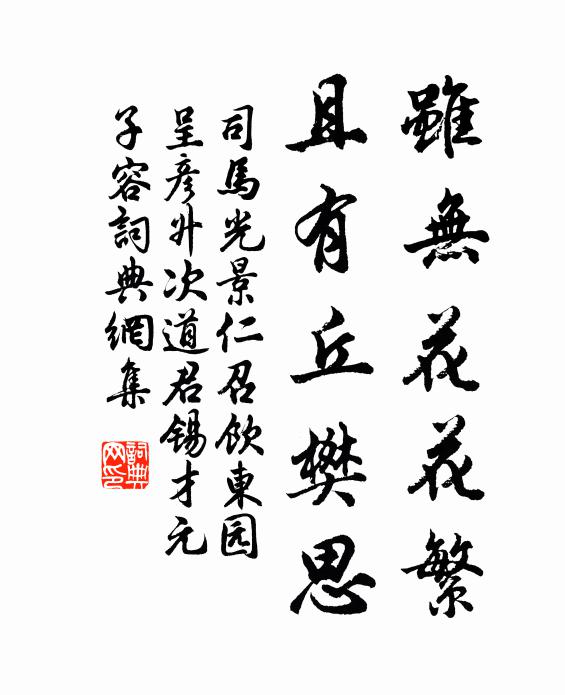 雖無花花繁
且有丘樊思
司馬光景仁召飲東园
呈彥升次道君錫才元
子容詞典網集
詞典网印